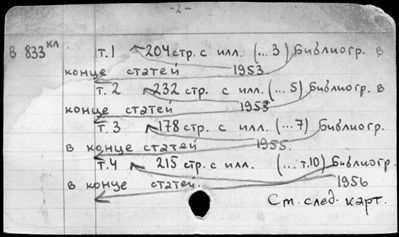 -2-
В 833 кл
т. 1 204 стр. с илл. (... 3) Библиогр. в
конце статей 1953.
т. 2 232 стр. с илл. (... 5) Библиогр. в
конце статей 1953
т. 3 178 стр. с илл. (... 7) Библиогр.
в конце статей 1955.
т. 4 215 стр. с илл. (... т. 10) Библиогр.
в конце статей. 1956
См. след. карт.